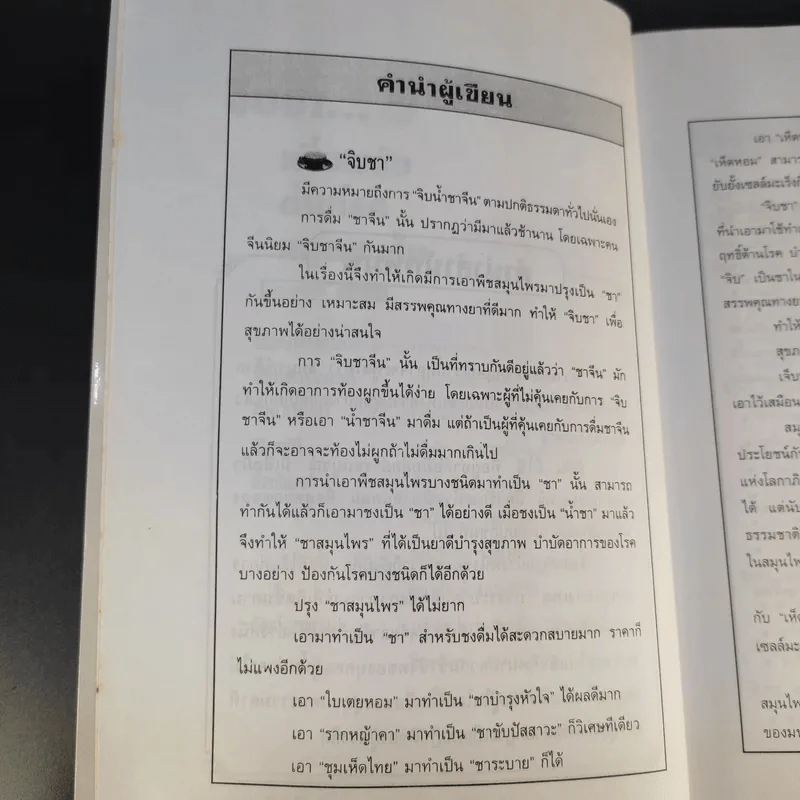 คำนำผู้เขียน
“จิบชา”
มีความหมายถึงการ “จิบน้ำชาจีน” ตามปกติธรรมดาทั่วไปนั่นเอง
การดื่ม “ชาจีน” นั้น ปรากฏว่ามีมาแล้วช้านาน โดยเฉพาะคน
จีนนิยม “จิบชาจีน” กันมาก
ในเรื่องนี้จึงทำให้เกิดมีการเอาพืชสมุนไพรมาปรุงเป็น “ชา”
กันขึ้นอย่าง เหมาะสม มีสรรพคุณทางยาที่ดีมาก ทำให้ “จิบชา” เพื่อ
สุขภาพได้อย่างน่าสนใจ
การ “จิบชาจีน” นั้น เป็นที่ทราบกันดีอยู่แล้วว่า “ชาจีน” มัก
ทำให้เกิดอาการท้องผูกขึ้นได้ง่าย โดยเฉพาะผู้ที่ไม่คุ้นเคยกับการ “จิบ
ชาจีน” หรือเอา “น้ำชาจีน” มาดื่ม แต่ถ้าเป็นผู้ที่คุ้นเคยกับการดื่มชาจีน
แล้วก็จะอาจจะท้องไม่ผูกถ้าไม่ดื่มมากเกินไป
การนำเอาพืชสมุนไพรบางชนิดมาทำเป็น “ชา” นั้น สามารถ
ทำกันได้แล้วก็เอามาชงเป็น “ชา” ได้อย่างดี เมื่อชงเป็น “น้ำชา” มาแล้ว
จึงทำให้ “ชาสมุนไพร” ที่ได้เป็นยาดีบำรุงสุขภาพ บำบัดอาการของโรค
บางอย่าง ป้องกันโรคบางชนิดก็ได้อีกด้วย
ปรุง “ชาสมุนไพร” ได้ไม่ยาก
เอามาทำเป็น “ชา” สำหรับชงดื่มได้สะดวกสบายมาก ราคาก็
ไม่แพงอีกด้วย
เอา “ใบเตยหอม” มาทำเป็น “ชาบำรุงหัวใจ” ได้ผลดีมาก
เอา “รากหญ้าคา” มาทำเป็น “ชาขับปัสสาวะ” ก็วิเศษทีเดียว
เอา “ชุมเห็ดไทย” มาทำเป็น “ชาระบาย” ก็ได้
เอา “เห็ด
“เห็ดหอม” สามาร
ยับยั้งเซลล์มะเร็ง
“จิบชา”
ที่นำเอามาใช้ทำ
ฤทธิ์ต้านโรค
“จิบ” เป็นชาใน
สรรพคุณทางยา
ทำให้
สุขภ
เจ็บ
เอาไว้เสมือน
สมุ
ประโยชน์กั
แห่งโลกาภิ
ได้ แต่นับ
ธรรมชาติ
ในสมุนไพ
กับ “เห็
เซลล์มะ
สมุนไพ
ของมน